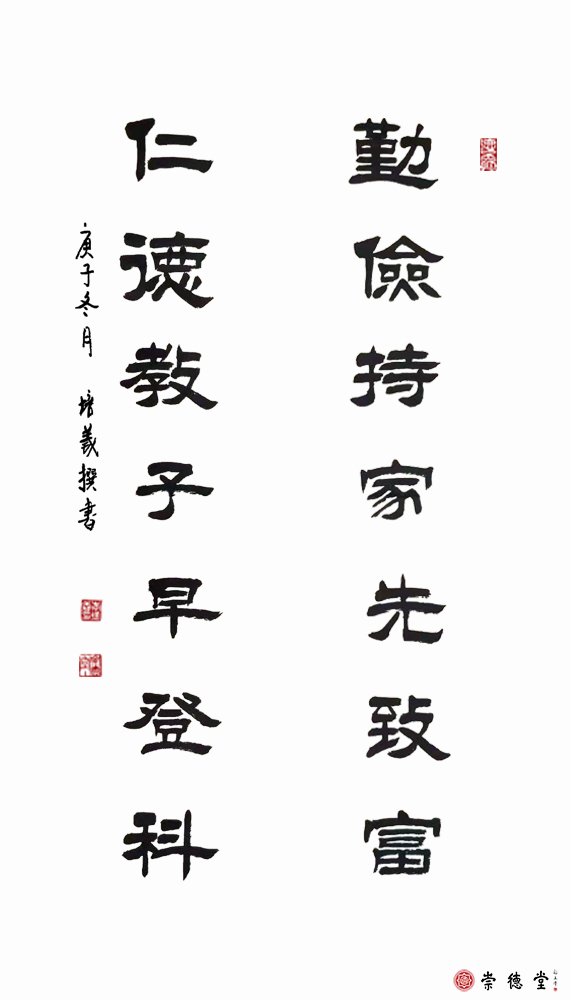 勤儉持家先致富
仁德教子早登科
庚子冬月 培義撰書
崇德堂